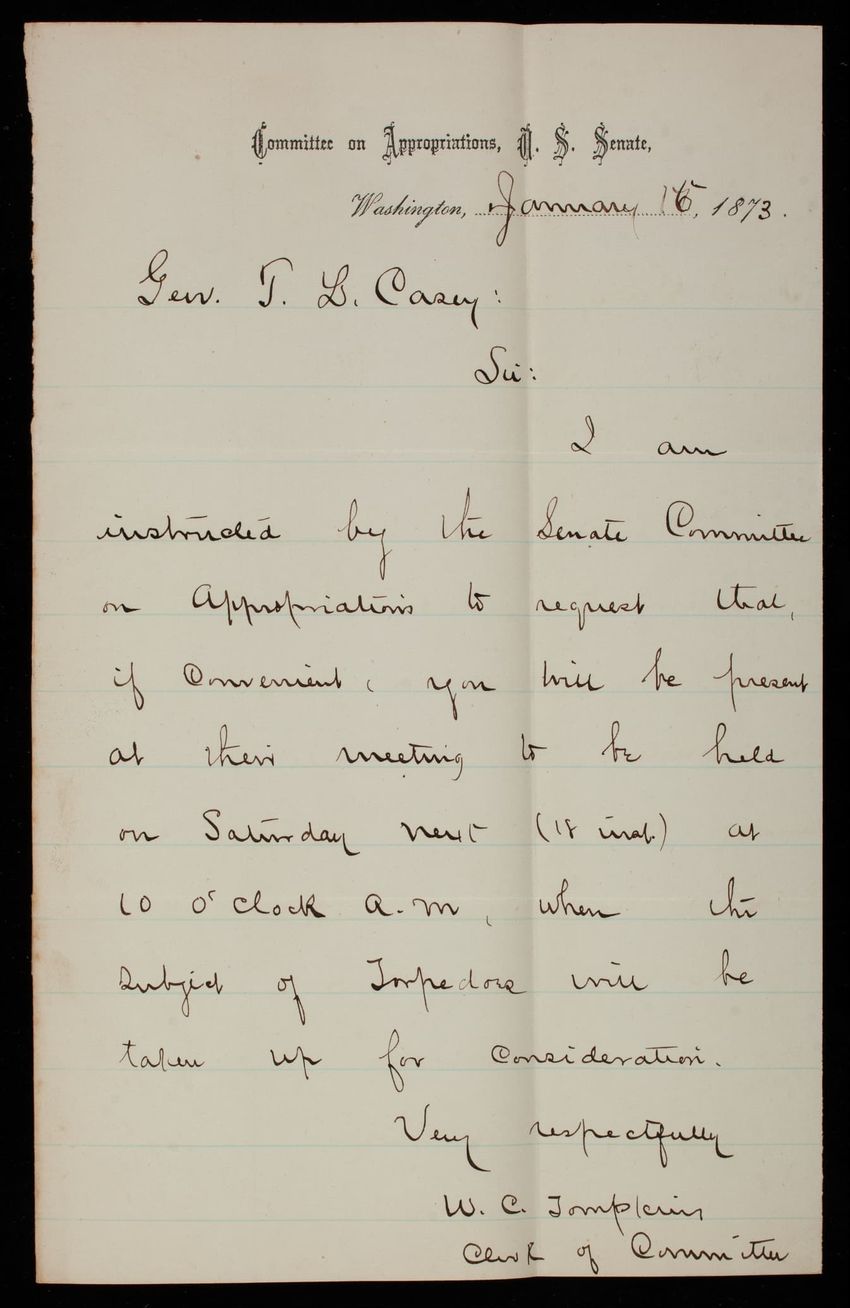 Committee on Appropriations, U. S. Senate,
Washington, January 16, 1873.
Gen. T. L. Casey:
Sir:
I am
instructed by the Senate Committee
on Appropriations to request that,
if Convenient, you will be present
at their meeting to be held
on Saturday next (18 inst.) at
10 o'clock A.M, when the
subject of Torpedoes will be
taken up for Consideration.
Very respectfully
W. C. Tompkins
Clerk of Committee